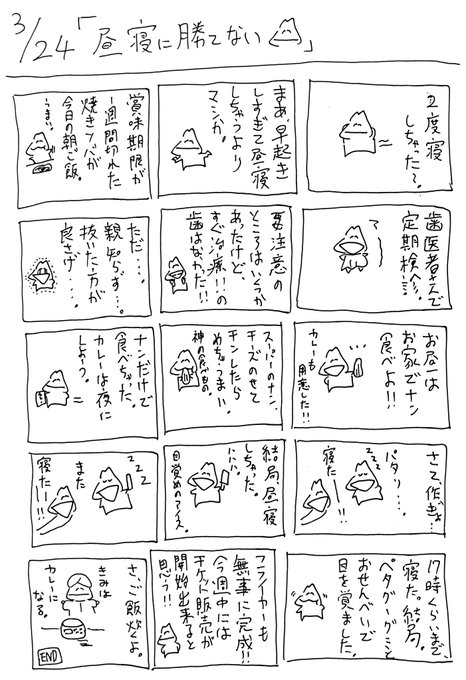 3/24「昼寝に勝てない」
二度寝
しちゃった〜。
まあ、早起き
しすぎて昼寝
しちゃうより
マシか。
賞味期限が
一週間切れた
焼きソバが
今日の朝ご飯。
うまい。
歯医者さんで
定期検診。
要注意の
ところはいくつか
あったけど、
すぐ治療!!の
歯はなかった!!
ただ…、
親知らず…。
抜いた方が
良さげ…。
お昼は
お家でナン
食べよ!!
カレーも
用意した!!
スーパーのナン、
チーズのせて
チンしたら
めちゃうまい。
神の食べもの。
ナンだけで
食べちゃった。
カレーは夜に
しよう。
さて、作ぎょ…
パタリ…。
zzz
寝た
ー!!
結局、昼寝
しちゃった。
ハハハ、
目覚めのアイス。
zzz
また
寝たー!!
17時くらいまで、
寝た。結局。
ペタグーグミと
おせんべいで
目を覚ました。
フライヤーも
無事に完成!!
今週中には
チケット販売が
開始出来ると
思う!!
さ、ご飯炊くよ。
きみは
カレーに
なる。
END